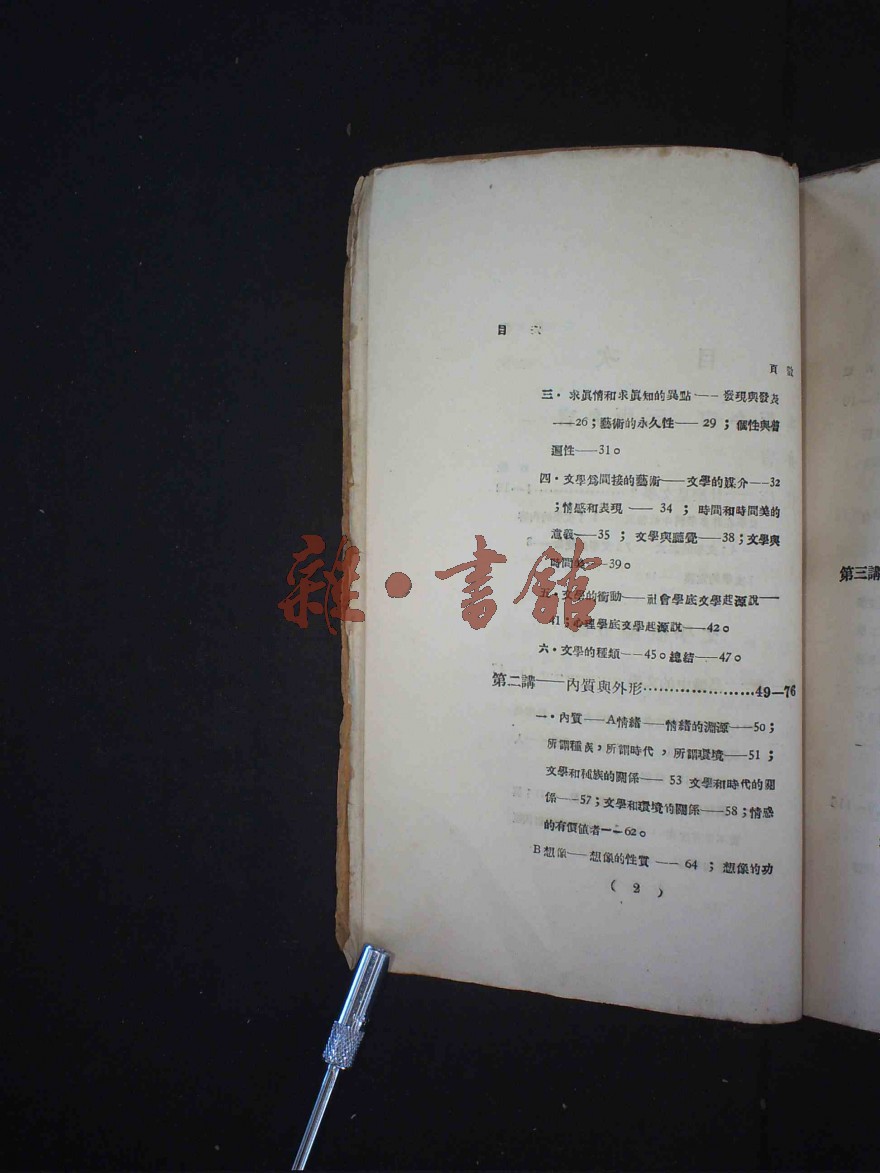 目 次
頁 數
三·求眞情和求眞知的異點——發現與發表
——26；藝術的永久性——29；個性與普
遍性——31。
四·文學爲間接的藝術——文學的媒介——32
；情感和表現——34；時間和時間美的
意義——35；文學與聽覺——38；文學與
時間美——39。
五·文學的衝動——社會學底文學起源說——
41；心理學底文學起源說——42。
六·文學的種類——45。總結——47。
第二講——內質與外形…………………49—76
一·內質——A情緒——情緒的淵源——50；
所謂種族，所謂時代，所謂環境——51；
文學和種族的關係——53 文學和時代的關
係——57；文學和環境的關係——58；情感
的有價值者——62。
B想像——想像的性質——64；想像的功
( 2 )
第三講
雜·書館